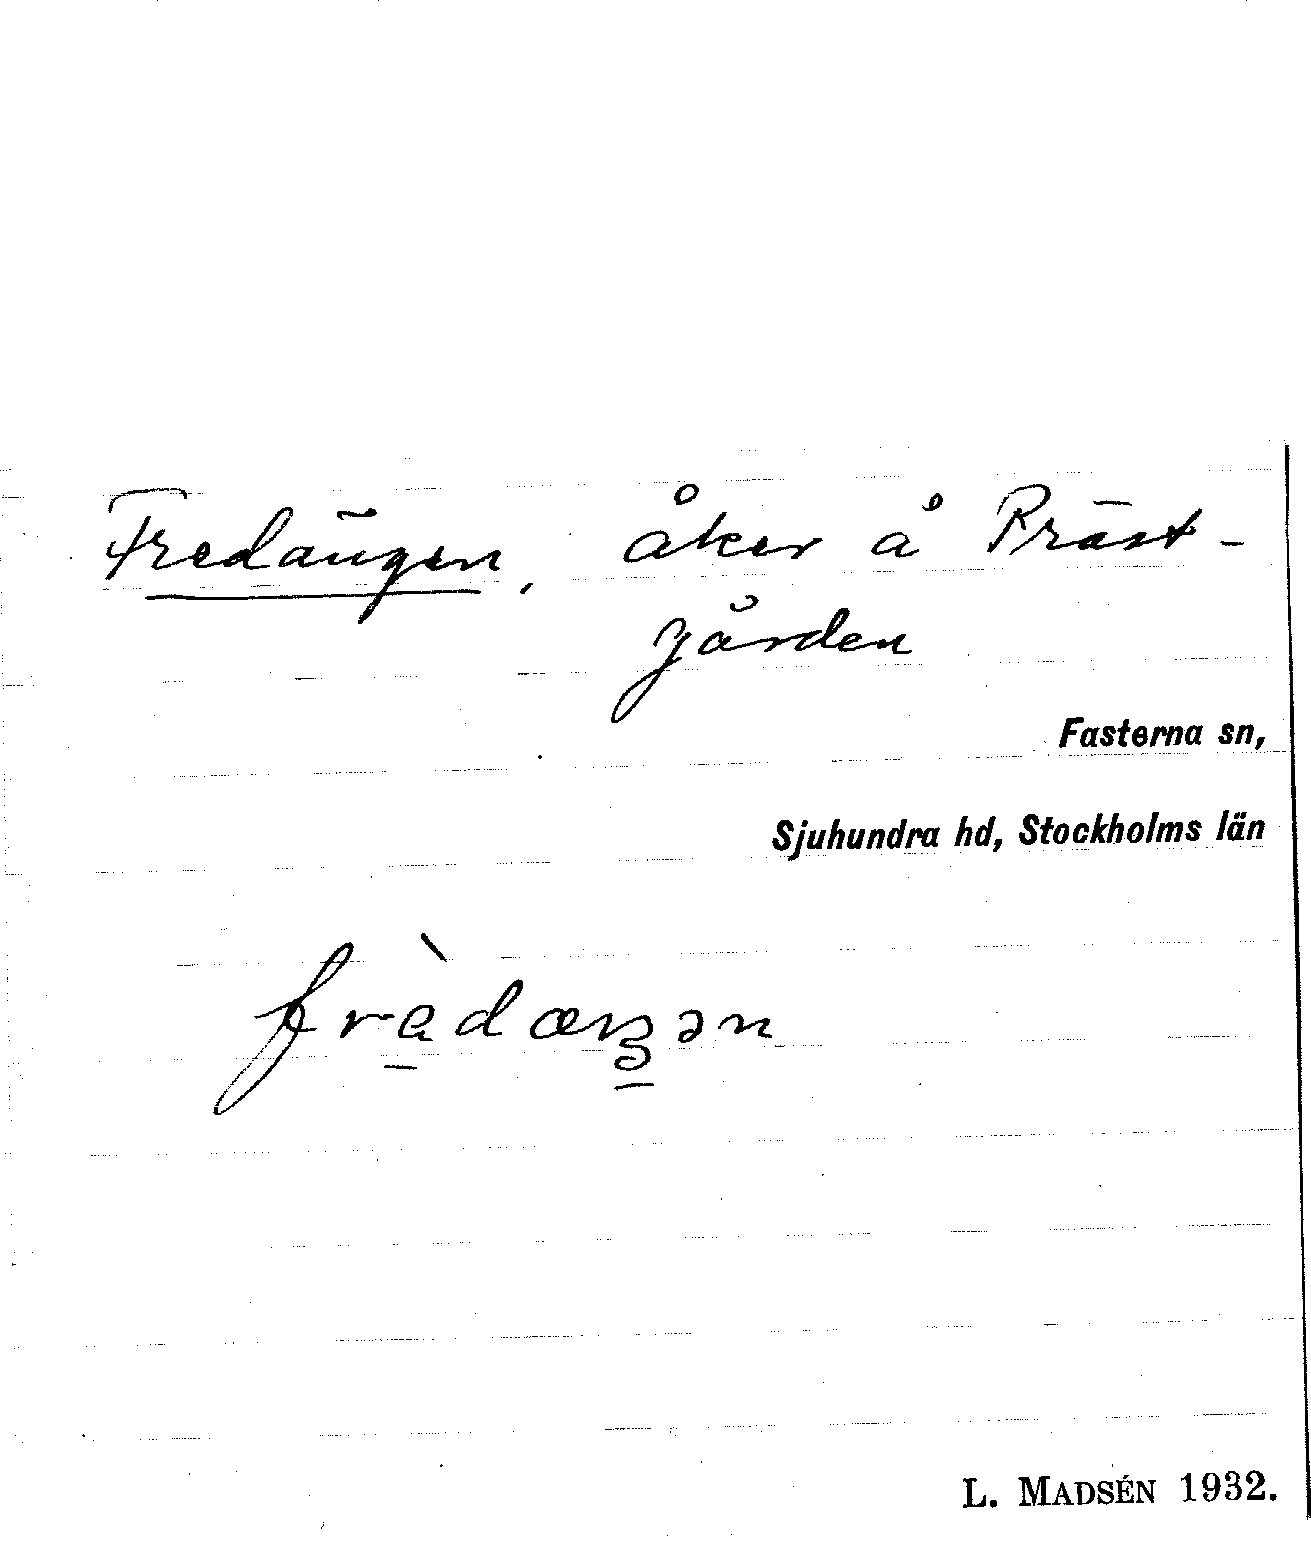 Fredängen, åker å Präst-
gården
Fasterna sn,
Sjuhundra hd, Stockholms län
L. MADSÉN 1932.